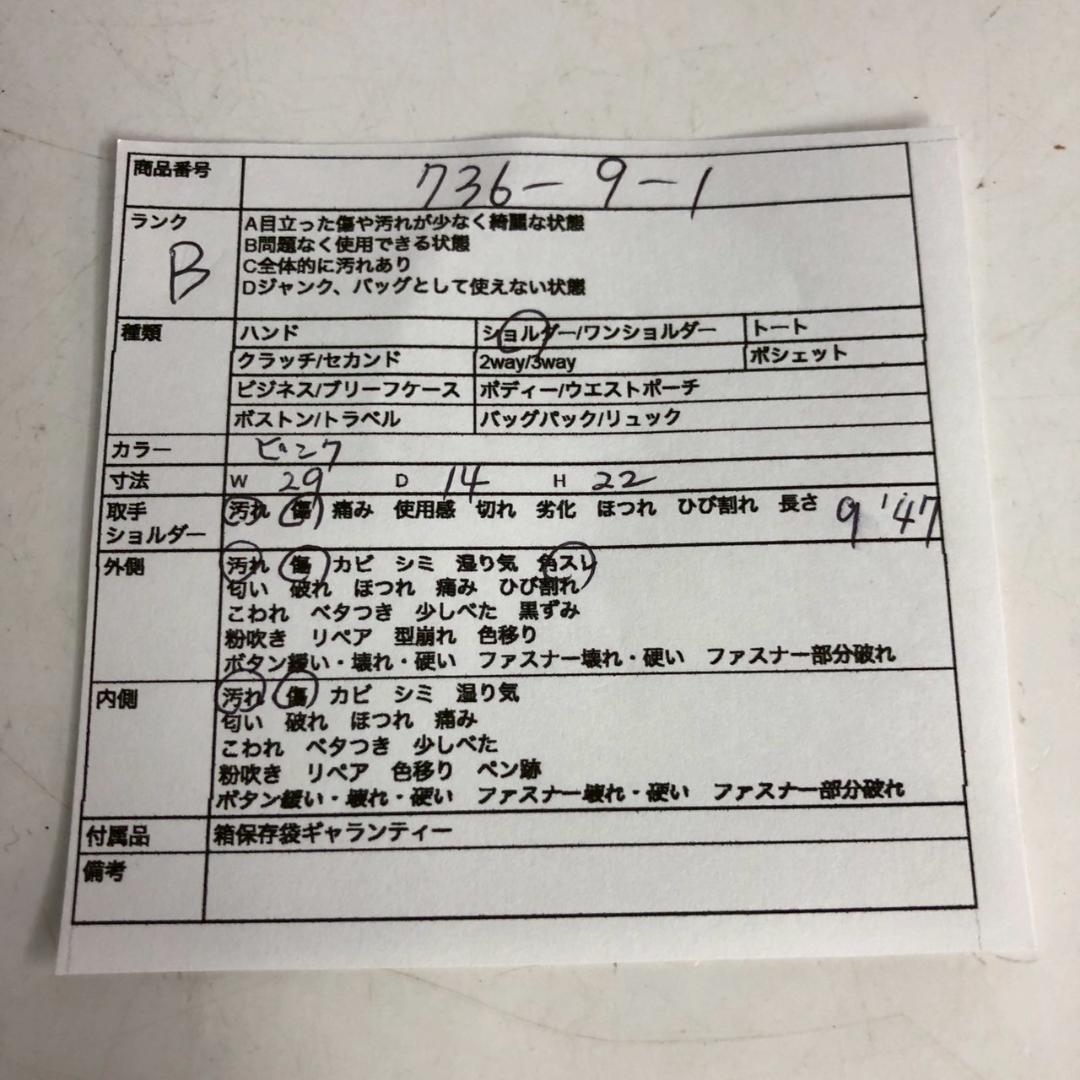 商品番号 736-9-1
ランク B
A目立った傷や汚れが少なく綺麗な状態
B問題なく使用できる状態
C全体的に汚れあり
Dジャンク、バッグとして使えない状態
種類 ハンド ショルダー/ワンショルダー トート
クラッチ/セカンド 2way/3way ポシェット
ビジネス/ブリーフケース ボディー/ウエストポーチ
ボストン/トラベル バッグパック/リュック
カラー ピンク
寸法 W 29 D 14 H 22
取手 汚れ 傷 痛み 使用感 切れ 劣化 ほつれ ひび割れ 長さ 9 '47
ショルダー
外側 汚れ 傷 カビ シミ 湿り気 角スレ
匂い 破れ ほつれ 痛み ひび割れ
こわれ ベタつき 少しべた 黒ずみ
粉吹き リペア 型崩れ 色移り
ボタン緩い・壊れ・硬い ファスナー壊れ・硬い ファスナー部分破れ
内側 汚れ 傷 カビ シミ 湿り気
匂い 破れ ほつれ 痛み
こわれ ベタつき 少しべた
粉吹き リペア 色移り ペン跡
ボタン緩い・壊れ・硬い ファスナー壊れ・硬い ファスナー部分破れ
付属品 箱保存袋ギャランティー
備考